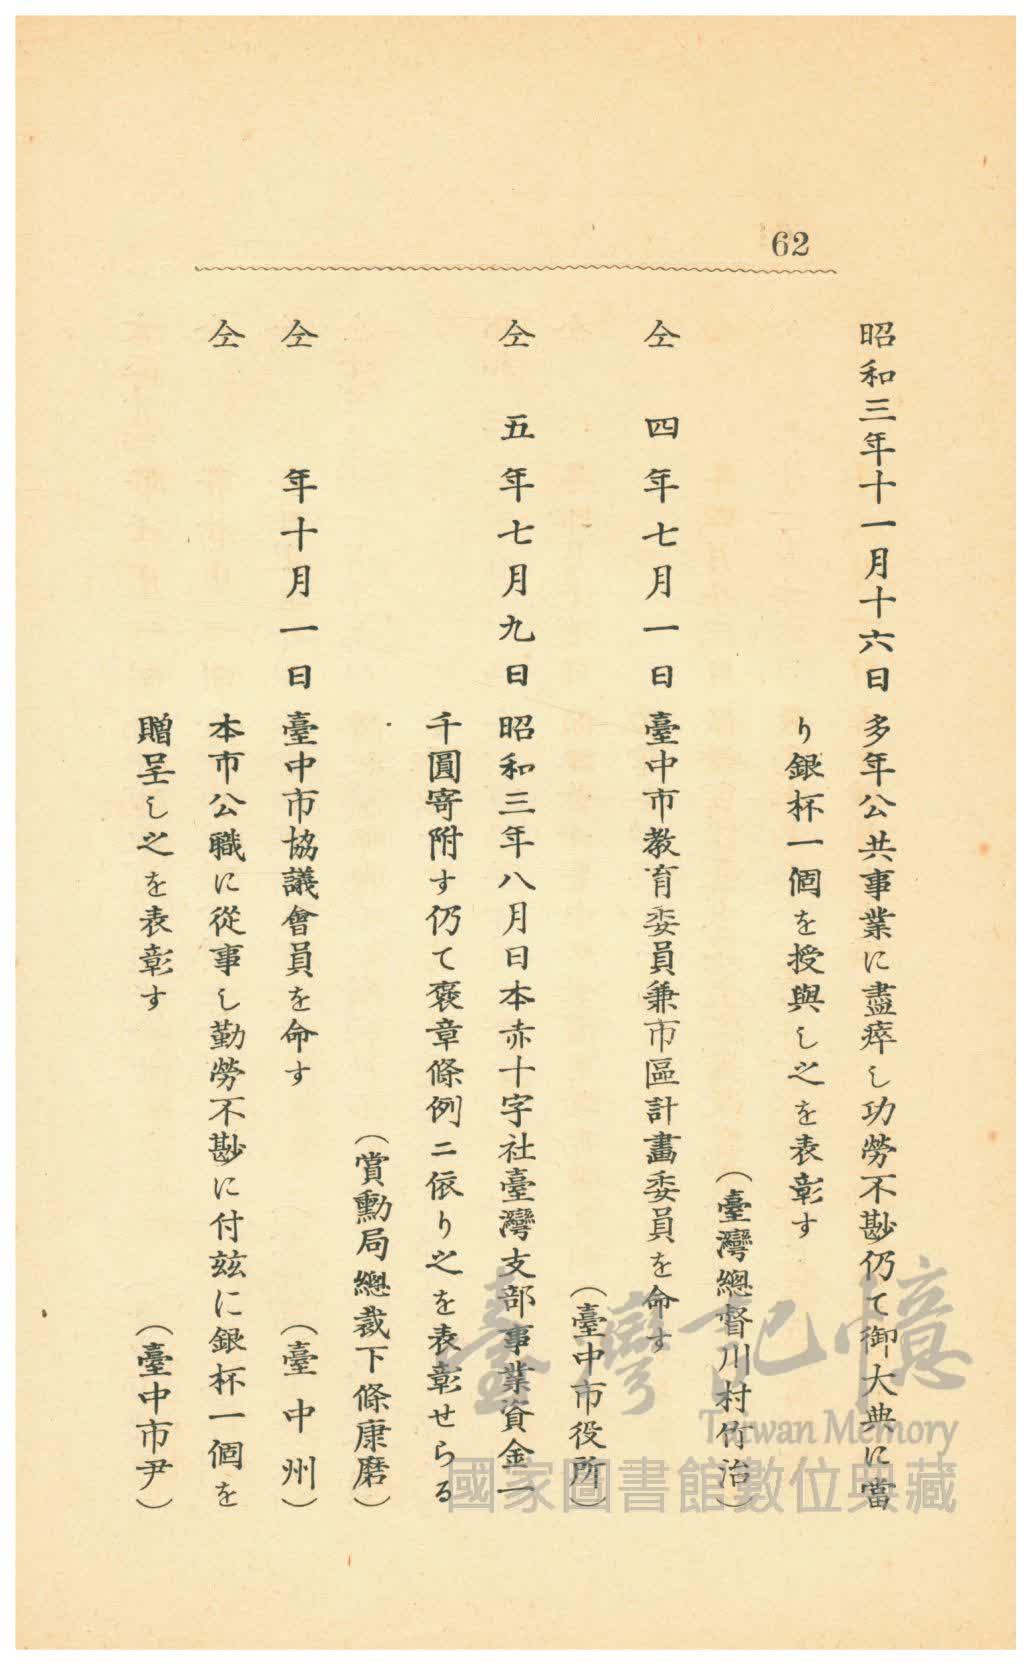 62
昭和三年十一月十六日 多年公共事業に盡瘁し功勞不尠仍て御大典に當
り銀杯一個を授與し之を表彰す
（臺灣總督川村竹治）
仝 四年七月一日 臺中市教育委員兼市區計畫委員を命す
（臺中市役所）
仝 五年七月九日 昭和三年八月日本赤十字社臺灣支部事業資金一
千圓寄附す仍て褒章條例ニ依り之を表彰せらる
（賞勳局總裁下條康麿）
仝 年十月一日 臺中市協議會員を命す
（臺中州）
仝 本市公職に從事し勤勞不尠に付茲に銀杯一個を
贈呈し之を表彰す
（臺中市尹）
臺灣記憶
Taiwan Memory
國家圖書館數位典藏